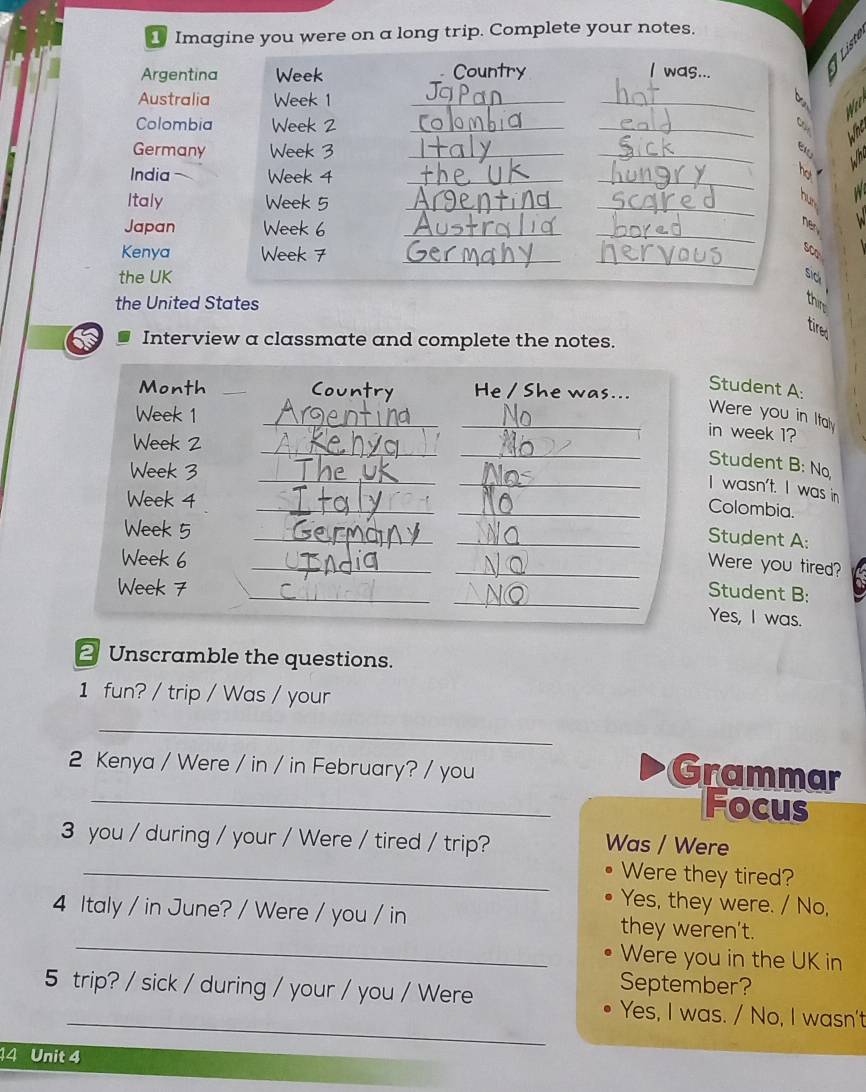 1 Imagine you were on a long trip. Complete your notes.
Argentina Week Country I was...
Australia Week 1 Japan hot
Colombia Week 2 colombia cald
Germany Week 3 Italy Sick
India Week 4 the UK hungry
Italy Week 5 Argentina scared
Japan Week 6 Australia bored
Kenya Week 7 Germany nervous
the UK
the United States
sick
tired
Interview a classmate and complete the notes.
Month Country He / She was...
Week 1 Argentina No
Week 2 Kenya No
Week 3 The UK No
Week 4 Italy No
Week 5 Germany No
Week 6 India NO
Week 7 C NO
Student A:
Were you in Italy
in week 1?
Student B: No,
I wasn't. I was in
Colombia.
Student A:
Were you tired?
Student B:
Yes, I was.
2 Unscramble the questions.
1 fun? / trip / Was / your
2 Kenya / Were / in / in February? / you
3 you / during / your / Were / tired / trip?
4 Italy / in June? / Were / you / in
5 trip? / sick / during / your / you / Were
Grammar
Focus
Was / Were
• Were they tired?
• Yes, they were. / No,
they weren't.
• Were you in the UK in
September?
• Yes, I was. / No, I wasn't
44 Unit 4